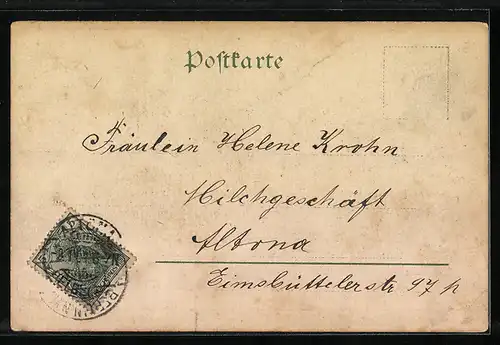 Postkarte
Fräulein Helene Krohn
Milchgeschäft
Altona
Eimsbüttelerstr 97 p
ALTONA